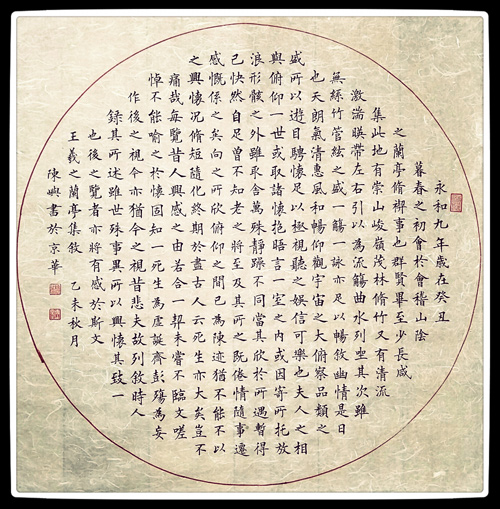 永和九年歲在癸丑
暮春之初會於會稽山陰
之蘭亭脩禊事也群賢畢至少長咸
集此地有崇山峻嶺茂林脩竹又有清流
激湍暎帶左右引以為流觴曲水列坐其次雖
無絲竹管絃之盛一觴一詠亦足以暢敘幽情是日
也天朗氣清惠風和暢仰觀宇宙之大俯察品類之
盛所以遊目騁懷足以極視聽之娛信可樂也夫人之相
與俯仰一世或取諸懷抱晤言一室之內或因寄所托放
浪形骸之外雖取舍萬殊靜躁不同當其欣於所遇暫得
己快然自足曾不知老之將至及其所之既倦情隨事遷
感慨係之矣向之所欣俯仰之間已為陳迹猶不能不以
之興懷況脩短隨化終期於盡古人云死生亦大矣豈不
痛哉每覽昔人興感之由若合一契未嘗不臨文嗟
悼不能喻之於懷固知一死生為虛誕齊彭殤為妄
作後之視今亦猶今之視昔悲夫故列敘時人
錄其所述雖世殊事異所以興懷其致一
也後之覽者亦將有感於斯文
王羲之蘭亭集敘 乙未秋月
陳興書於京華